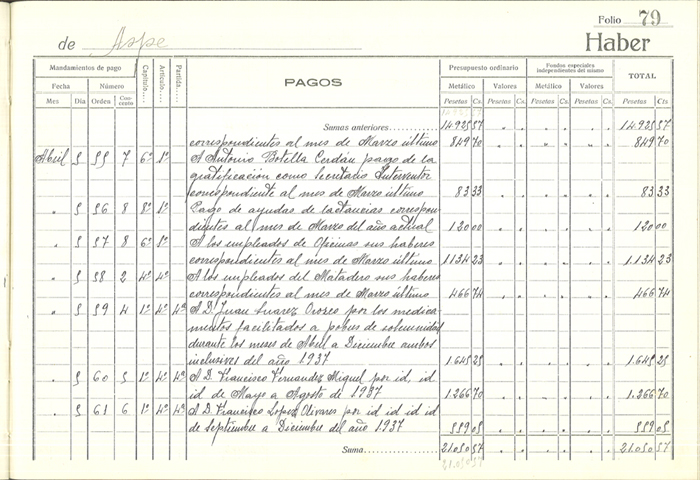 Folio 79
de Aspe Haber
Mandamientos de pago Capítulo.... Artículo.... Partida.... PAGOS Presupuesto ordinario Fondos especiales independientes del mismo TOTAL
Fecha Número Metálico Valores Metálico Valores
Mes Día Orden Con-cepto Pesetas Cs. Pesetas Cs. Pesetas Cs. Pesetas Cs. Pesetas Cts
Sumas anteriores 14925 57 14.925 57
correspondientes al mes de Marzo último 849 70 849 70
Abril 5 55 7 6º 1º A Antonio Botella Cerdán pargo de la
gratificación como Secretario Interventor
correspondiente al mes de Marzo último 83 33 83 33
" 5 56 8 8º 1º Pago de ayudas de lactancias correspon-
dientes al mes de Marzo del año actual 120 00 120 00
" 5 57 8 6º 8º A los empleados de Oficinas sus haberes
correspondientes al mes de Marzo último 1134 23 1.134 23
" 5 58 2 4º 4º A los empleados del Matadero sus haberes
correspondientes al mes de Marzo último 466 74 466 74
" 5 59 4 1º 4º 4ª A D. Juan Suarez Orozco por los medica-
mentos facilitados a pobres de solemnidad
durante los meses de Abril a Diciembre ambos
inclusives del año 1937 1.645 25 1.645 25
" 5 60 5 1º 4º 4ª A D. Francisco Fernandez Miguel por id, id
id de Mayo a Agosto de 1937 1.266 70 1.266 70
" 5 61 6 1º 4º 4ª A D. Francisco Lopez Olivares por id id id id
de Septiembre a Diciembre del año 1.937 559 05 559 05
Suma 21.050 57 21.050 57
21.050 57